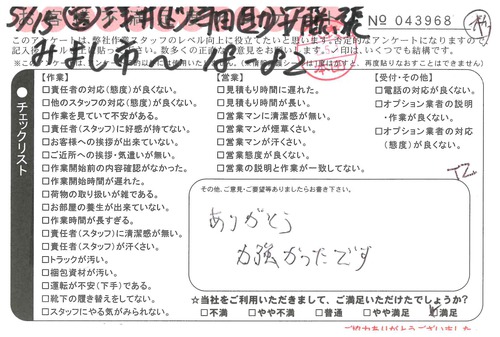 No 043968
このアンケートは、弊社作業スタッフのレベル向上に役立てたいと思います。否定的なアンケートになりますので
記入後、
数多くのご正直な
ご意見をお
します。レ印は、いくつでも結構です。
み ま 市
18-22
チェックリスト
【作業】
□責任者の対応(態度)が良くない。
□他のスタッフの対応(態度)が良くない。
□作業を見ていて不安がある。
□責任者(スタッフ)に好感が持てない。
□お客様への挨拶が出来ていない。
□ご近所への挨拶・気遣いが無い。
□作業開始前の内容確認がなかった。
□作業開始時間が遅れた。
□荷物の取り扱いが雑である。
□お部屋の養生が出来ていない。
□作業時間が長すぎる。
□責任者(スタッフ)に清潔感が無い。
□責任者(スタッフ)が汗くさい。
□トラックが汚い。
□梱包資材が汚い。
□運転が不安(下手)である。
□靴下の履き替えをしてない。
□スタッフにやる気がみられない。
【営業】
□見積もり時間に遅れた。
□見積もり時間が長い。
□営業マンに清潔感が無い。
□営業マンが煙草くさい。
□営業マンが汗くさい。
□営業態度が良くない。
□営業の説明と作業が一致してない。
【受付・その他】
□電話の対応が良くない。
□オプション業者の説明
・作業が良くない。
□オプション業者の対応
(態度)が良くない。
その他、ご意見・ご要望等ありましたらお書き下さい。
ありがとう
力強かったです
☆当社をご利用いただきまして、ご満足いただけたでしょうか?
□不満 □やや不満 □普通 □やや満足 □満足
ご協力ありがとうございました